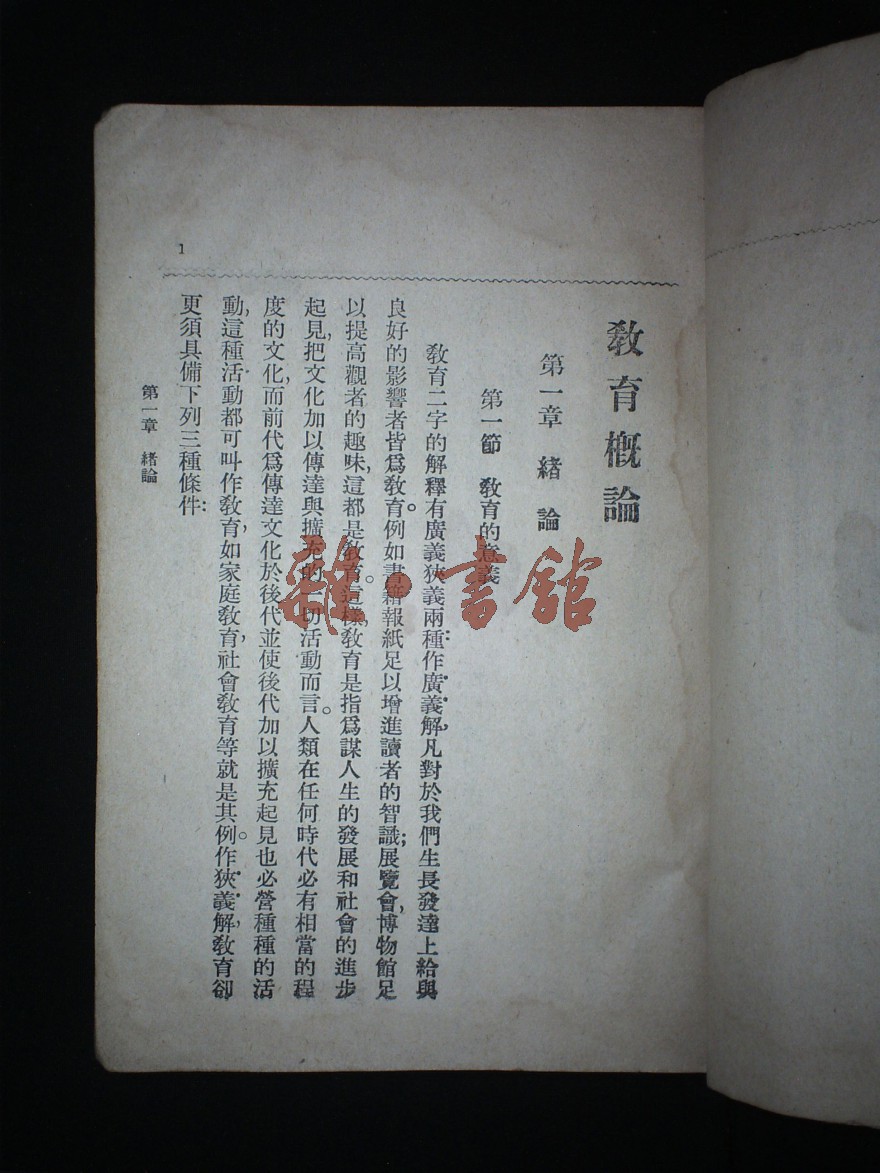 教育概論
第一章 緒論
第一節 教育的意義
教育二字的解釋有廣義狹義兩種：作廣義解，凡對於我們生長發達上給與
良好的影響者皆爲教育。例如書籍報紙足以增進讀者的智識；展覽會，博物館足
以提高觀者的趣味，這都是教育。這樣，教育是指爲謀人生的發展和社會的進步
起見，把文化加以傳達與擴充的一切活動而言。人類在任何時代必有相當的程
度的文化，而前代爲傳達文化於後代並使後代加以擴充起見也必營種種的活
動，這種活動都可叫作教育，如家庭教育，社會教育等就是其例。作狹義解，教育卻
更須具備下列三種條件：
第一章 緒論
1
雜·書館